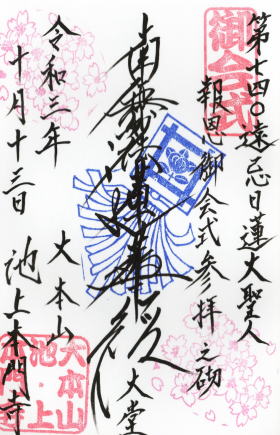 御会式
第七四〇遠忌日蓮大聖人
報恩御会式参拝之砌
南無妙法蓮華経
大堂
令和三年
十月十三日
大本山
池上本門寺
大本山
池上
本門寺